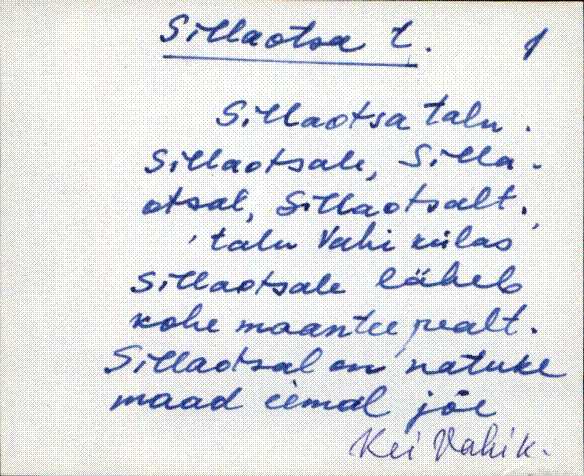 Sillaotsa t. 1
Sillaotsa talu.
Sillaotsale, Silla-
otsal, Sillaotsalt.
, talu Vahi külas
Sillaotsale läheb
kohe maantee pealt.
Sillaotsal on natuke
maad eemal jõe
Kei Vahik.